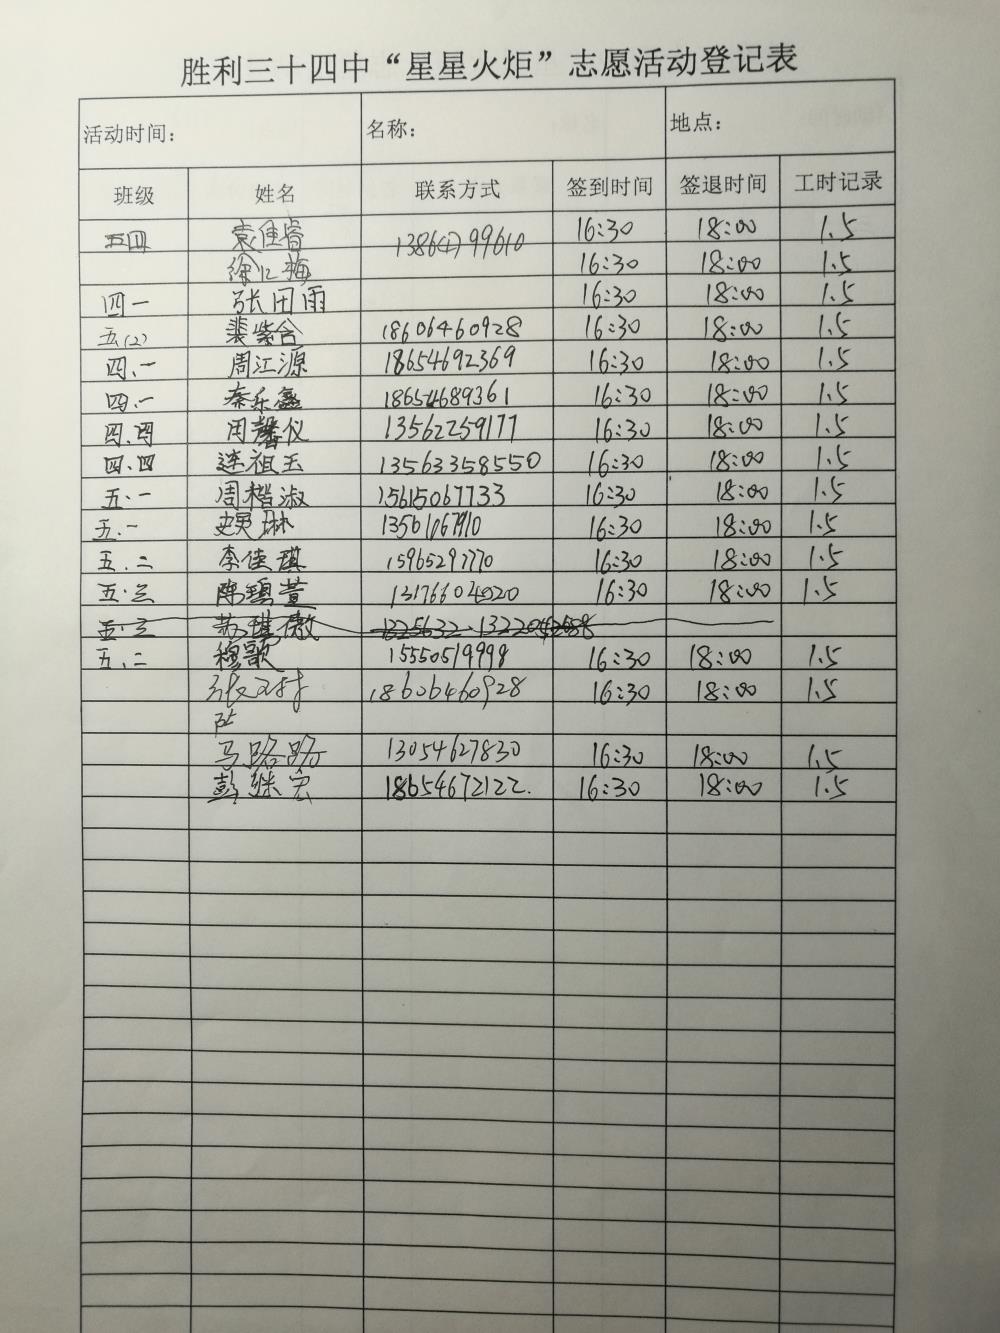 胜利三十四中“星星火炬”志愿活动登记表
活动时间： 名称： 地点：
班级 姓名 联系方式 签到时间 签退时间 工时记录
五四 袁佳睿 16:30 18:00 1.5
徐仁梅 16:30 18:00 1.5
四一 张田雨 16:30 18:00 1.5
五(2) 裴紫含 18606460928 16:30 18:00 1.5
四.一 周江源 18654692369 16:30 18:00 1.5
四.一 秦乐鑫 18654689361 16:30 18:00 1.5
四.四 闭馨仪 13562259177 16:30 18:00 1.5
四.四 连祖玉 13563358550 16:30 18:00 1.5
五.一 周楷淑 15615067733 16:30 18:00 1.5
五.一 琳 16:30 18:00 1.5
五.二 李佳琪 15965297770 16:30 18:00 1.5
五.三 陈萱 13176604020 16:30 18:00 1.5
五.三
五.二 穆歌 15550519998 16:30 18:00 1.5
张 18606460928 16:30 18:00 1.5
马路路 13054627830 16:30 18:00 1.5
彭继宏 18654672122. 16:30 18:00 1.5